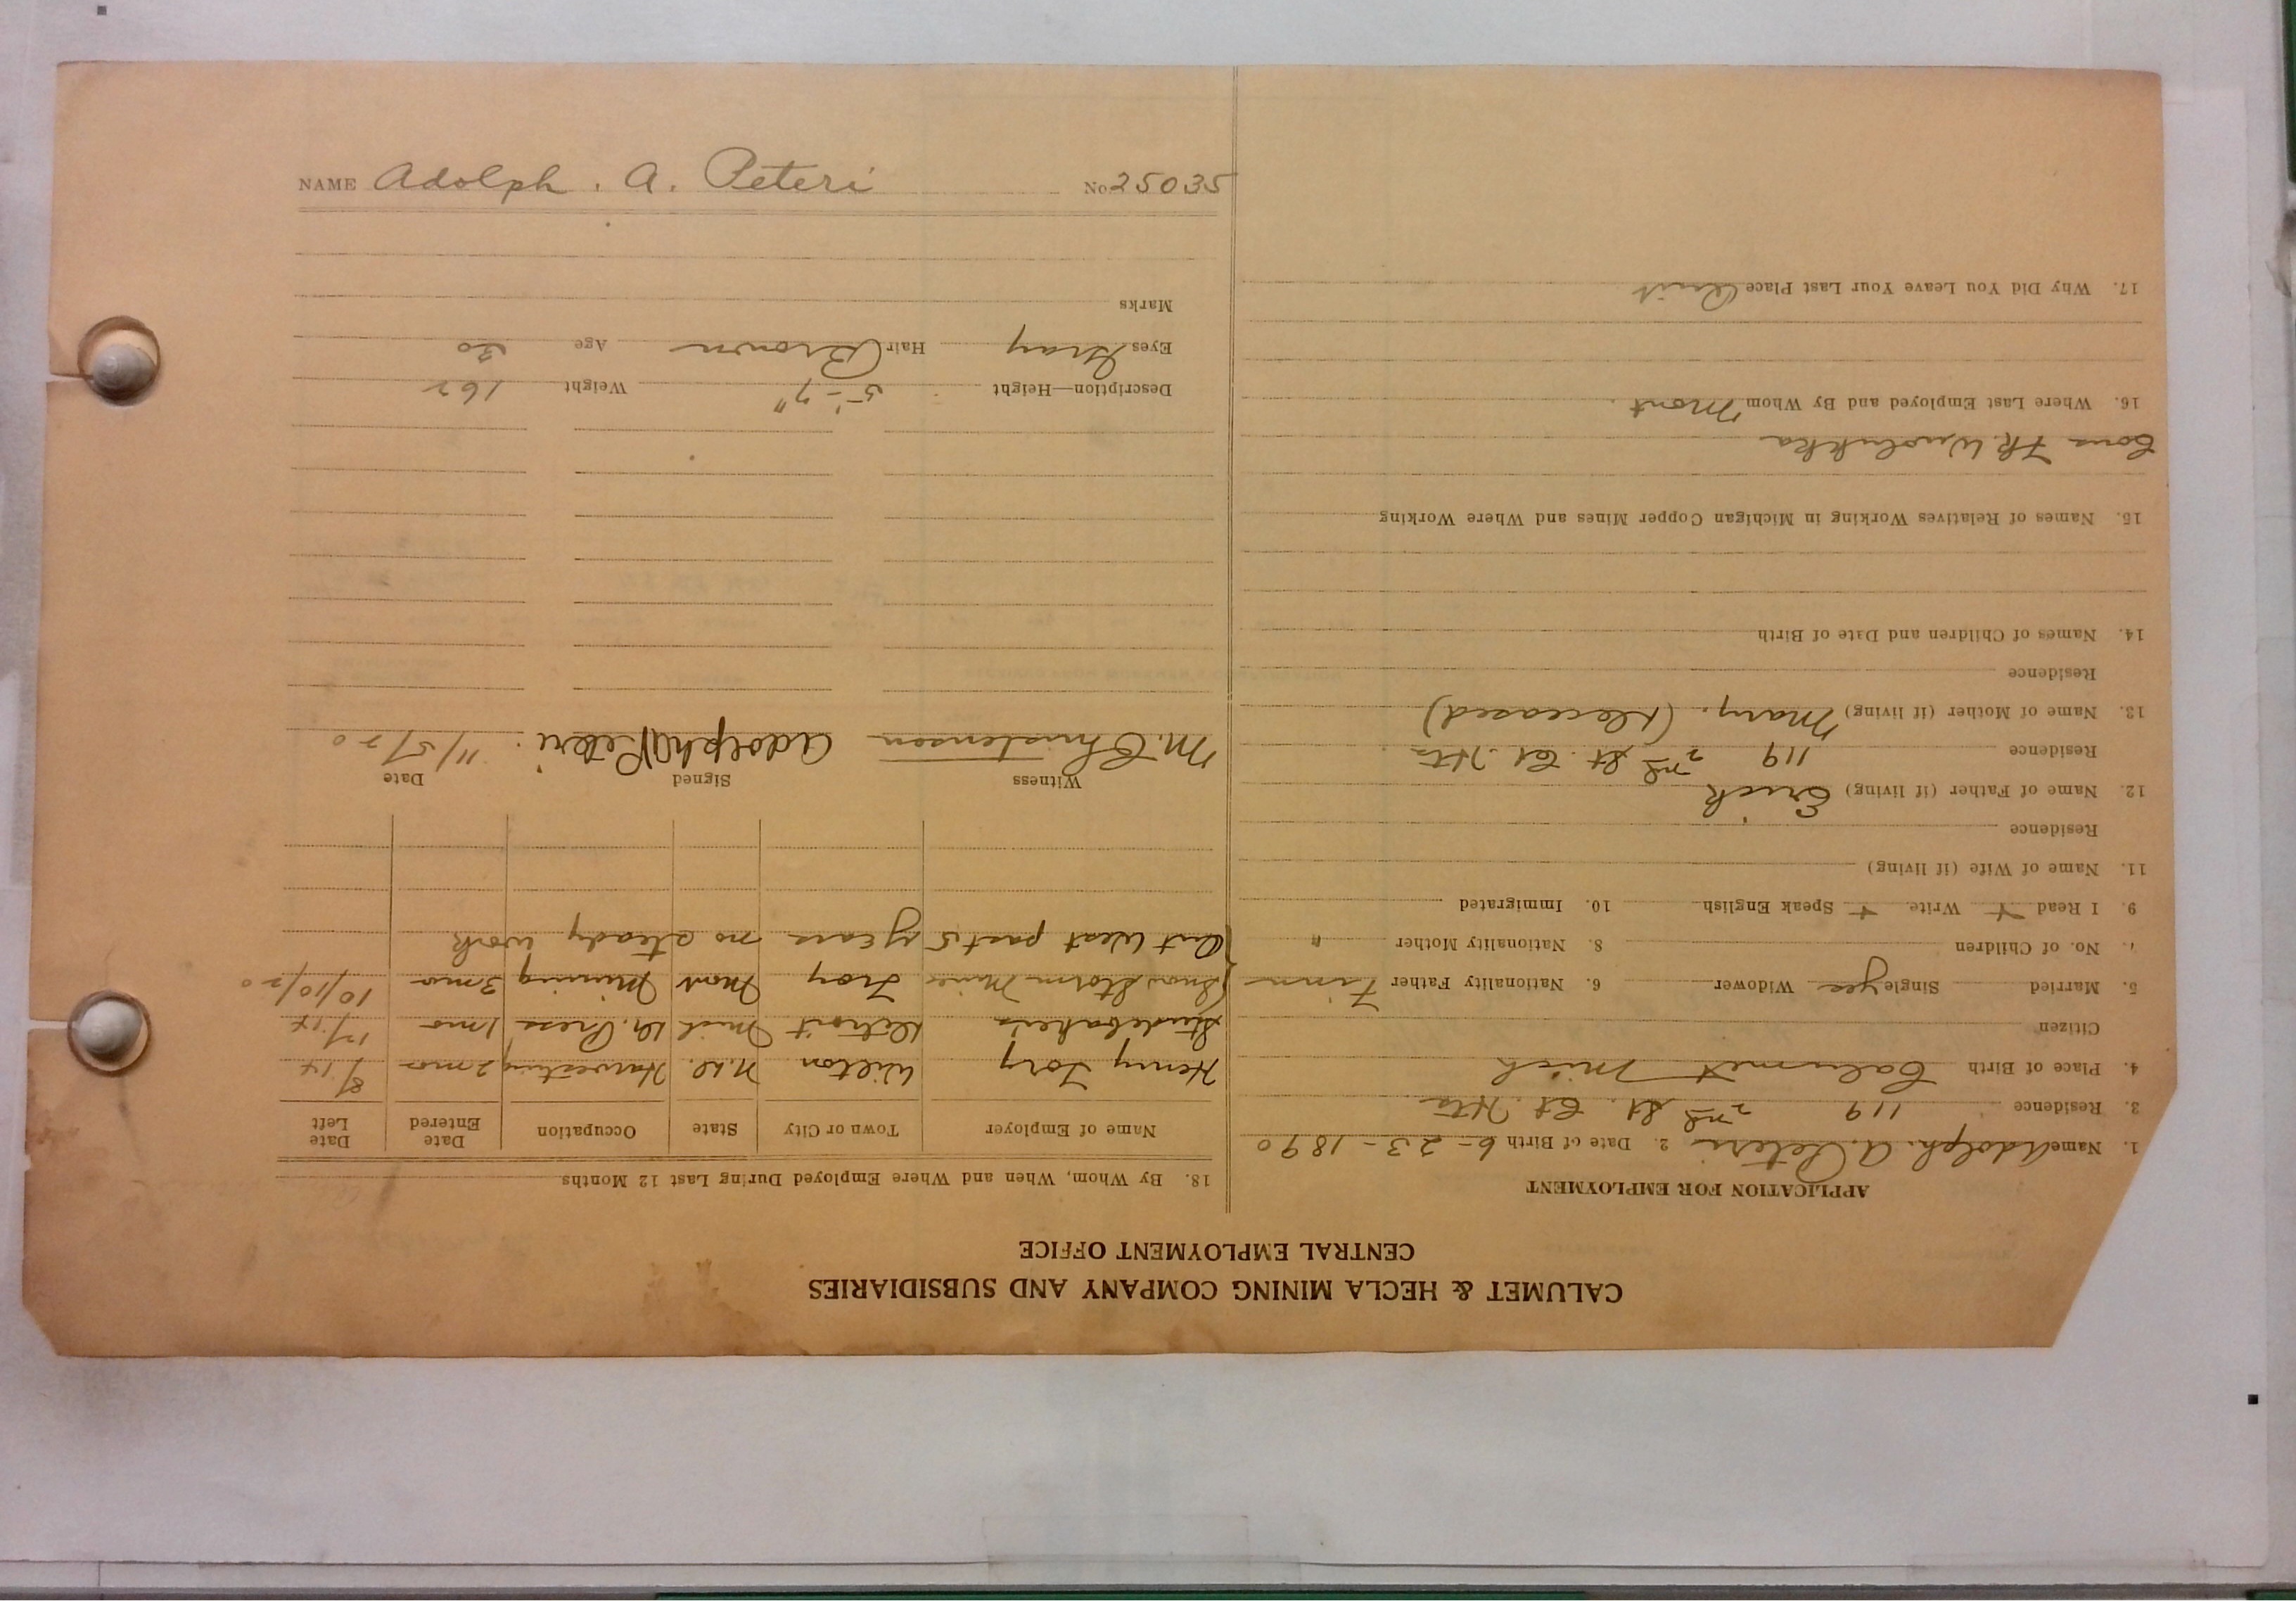 CALUMET & HECLA MINING COMPANY AND SUBSIDIARIES
CENTRAL EMPLOYMENT OFFICE
APPLICATION FOR EMPLOYMENT
1. Name Adolph. A. Peteri 2. Date of Birth 6-23-1890
3. Residence 119 2nd St. Ct. Hts
4. Place of Birth Calumet Mich
Citizen
5. Married Single yes Widower 6. Nationality Father Finn
7. No. of Children 8. Nationality Mother "
9. I Read + Write + Speak English 10. Immigrated
11. Name of Wife (if living)
Residence
12. Name of Father (if living) Erick
Residence 119 2nd St. Ct. Hts.
13. Name of Mother (if living) Mary. (Deceased)
Residence
14. Names of Children and Date of Birth
15. Names of Relatives Working in Michigan Copper Mines and Where Working
16. Where Last Employed and By Whom Mont.
17. Why Did You Leave Your Last Place Quit
18. By Whom, When and Where Employed During Last 12 Months
Name of Employer Town or City State Occupation Date Entered Date Left
Henry Wilton N.D. Harvesting 2 mo 8/14
Studebaker's Detroit Mich D. Press 1 mo 12/14
Snow Storm Mine Troy Mont Mining 3 mo 10/10/20
Out West past 5 years no steady work
Witness Signed Date
M. Christensen Adolph A Peteri. 11/5/20
Description—Height 5'-7" Weight 162
Eyes Gray Hair Brown Age 30
Marks
NAME Adolph. A. Peteri No. 25035